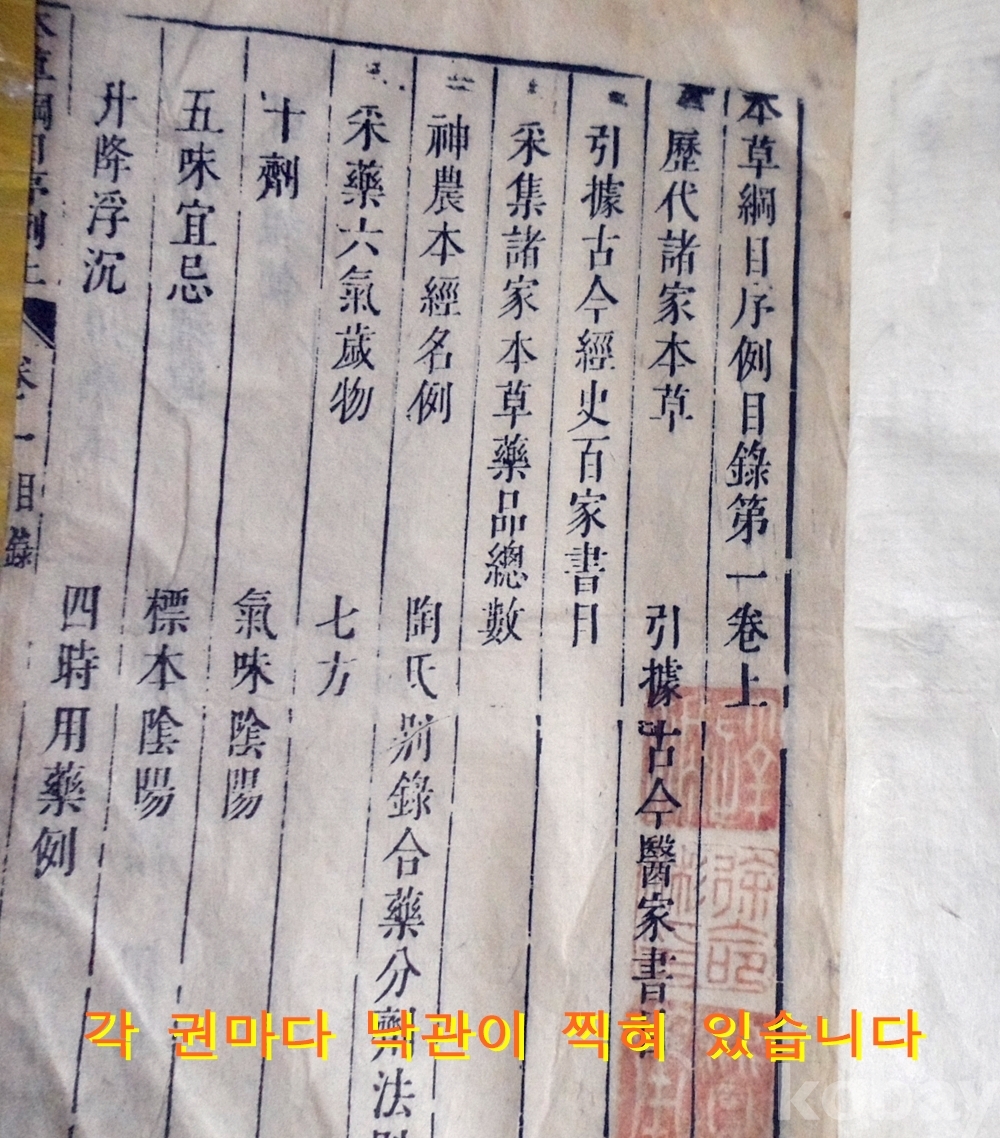 本草綱目序例目錄第一卷上
歷代諸家本草 引據古今醫家書
引據古今經史百家書目
采集諸家本草藥品總數
神農本經名例 陶氏別錄合藥分劑法
采藥六氣歲物 七方
十劑 氣味陰陽
五味宜忌 標本陰陽
升降浮沉 四時用藥例
卷一目錄
각 권마다 낙관이 찍혀 있습니다